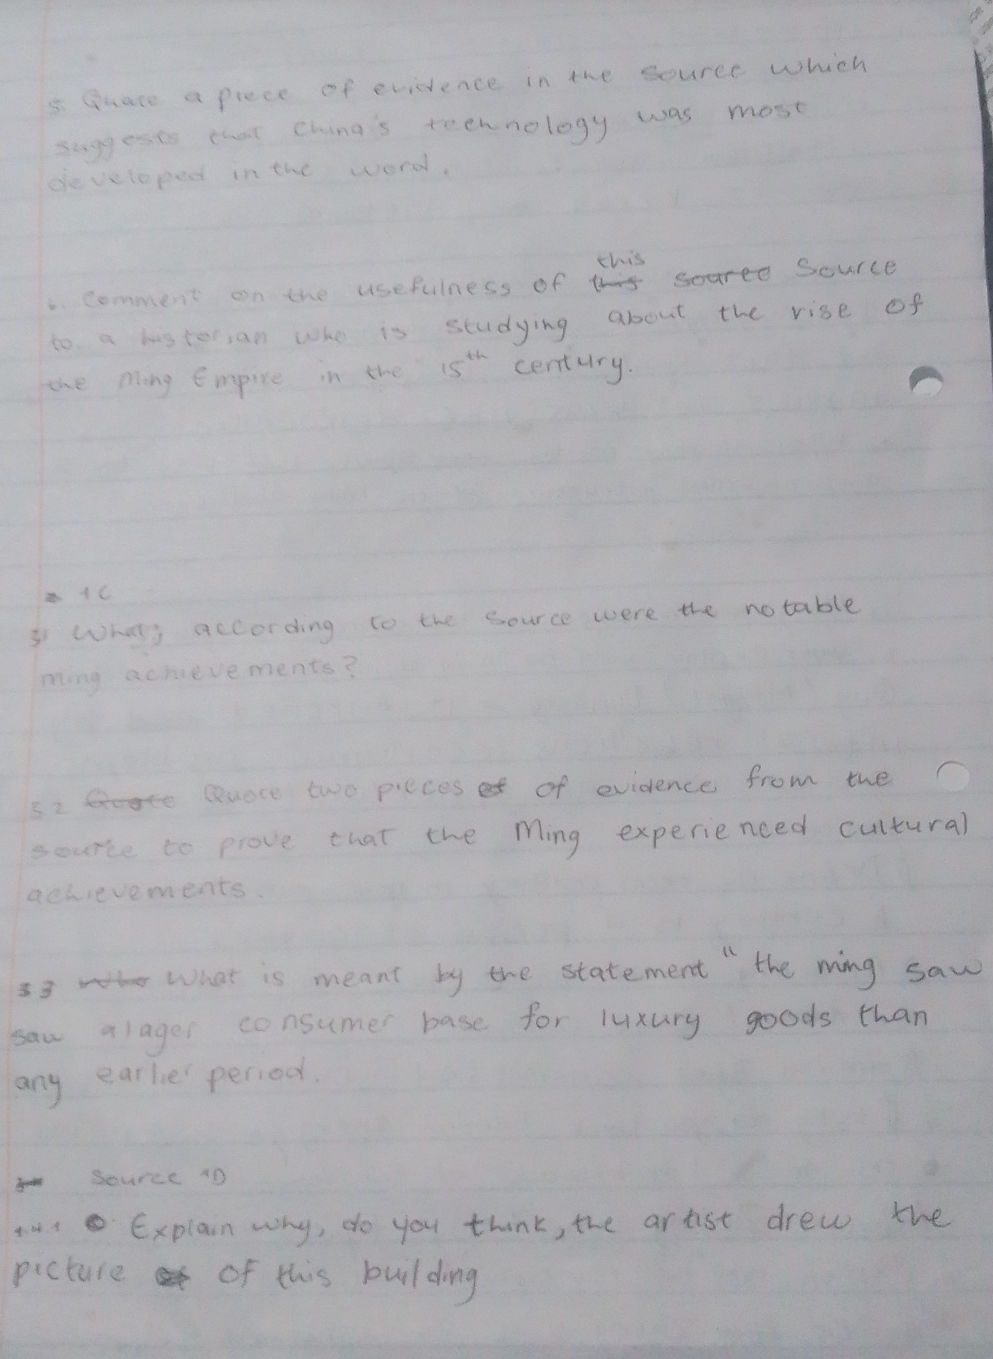 5. Quate a piece of evidence in the source which
suggests that China's technology was most
developed in the word.
this
6. Comment on the usefulness of this source Source
to a historian who is studying about the rise of
the Ming Empire in the 15th century.
1C
What, according to the source were the notable
ming achievements?
3.2 Quote Quote two pieces of of evidence from the
source to prove that the Ming experienced cultural
achievements.
3.3 who What is meant by the statement "the ming saw
saw a lager consumer base for luxury goods than
any earlier period.
Source 1D
Explain why, do you think, the artist drew the
picture of this building